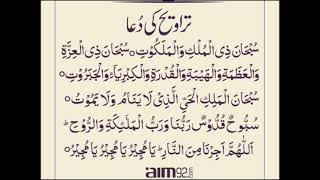 تراویح کی دُعا
سُبْحَانَ ذِی الْمُلْکِ وَالْمَلَکُوْتِ ۝ سُبْحَانَ ذِی الْعِزَّۃِ
وَالْعَظَمَۃِ وَالْھَیْبَۃِ وَالْقُدْرَۃِ وَالْکِبْرِیَآءِ وَالْجَبَرُوْتِ ۝
سُبْحَانَ الْمَلِکِ الْحَیِّ الَّذِیْ لَا یَنَامُ وَلَا یَمُوْتُ ۝
سُبُّوْحٌ قُدُّوْسٌ رَبُّنَا وَرَبُّ الْمَلٰٓئِکَۃِ وَالرُّوْحِ ۝
اَللّٰھُمَّ اَجِرْنَا مِنَ النَّارِ ؕ یَا مُجِیْرُ یَا مُجِیْرُ یَا مُجِیْرُ
aim92.com